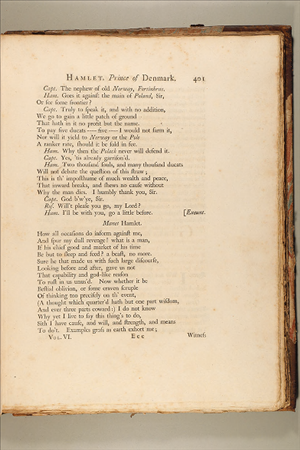 HAMLET, Prince of Denmark. 401
Capt. The nephew of old Norway, Fortinbras.
Ham. Goes it against the main of Poland, Sir,
Or for some frontier?
Capt. Truly to speak it, and with no addition,
We go to gain a little patch of ground
That hath in it no profit but the name.
To pay five ducats — five — I would not farm it,
Nor will it yield to Norway or the Pole
A ranker rate, should it be sold in fee.
Ham. Why then the Polack never will defend it.
Capt. Yes, 'tis already garrison'd.
Ham. Two thousand souls, and many thousand ducats
Will not debate the question of this straw;
This is th' imposthume of much wealth and peace,
That inward breaks, and shews no cause without
Why the man dies. I humbly thank you, Sir.
Capt. God b'w'ye, Sir.
Ros. Will't please you go, my Lord?
Ham. I'll be with you, go a little before. [Exeunt.
Manet Hamlet.
How all occasions do inform against me,
And spur my dull revenge! what is a man,
If his chief good and market of his time
Be but to sleep and feed? a beast, no more.
Sure he that made us with such large discourse,
Looking before and after, gave us not
That capability and god-like reason
To rust in us unus'd. Now whether it be
Bestial oblivion, or some craven scruple
Of thinking too precisely on th' event,
(A thought which quarter'd hath but one part wisdom,
And ever three parts coward:) I do not know
Why yet I live to say this thing's to do,
Sith I have cause, and will, and strength, and means
To do't. Examples gross as earth exhort me;
VOL. VI. Eee Witness